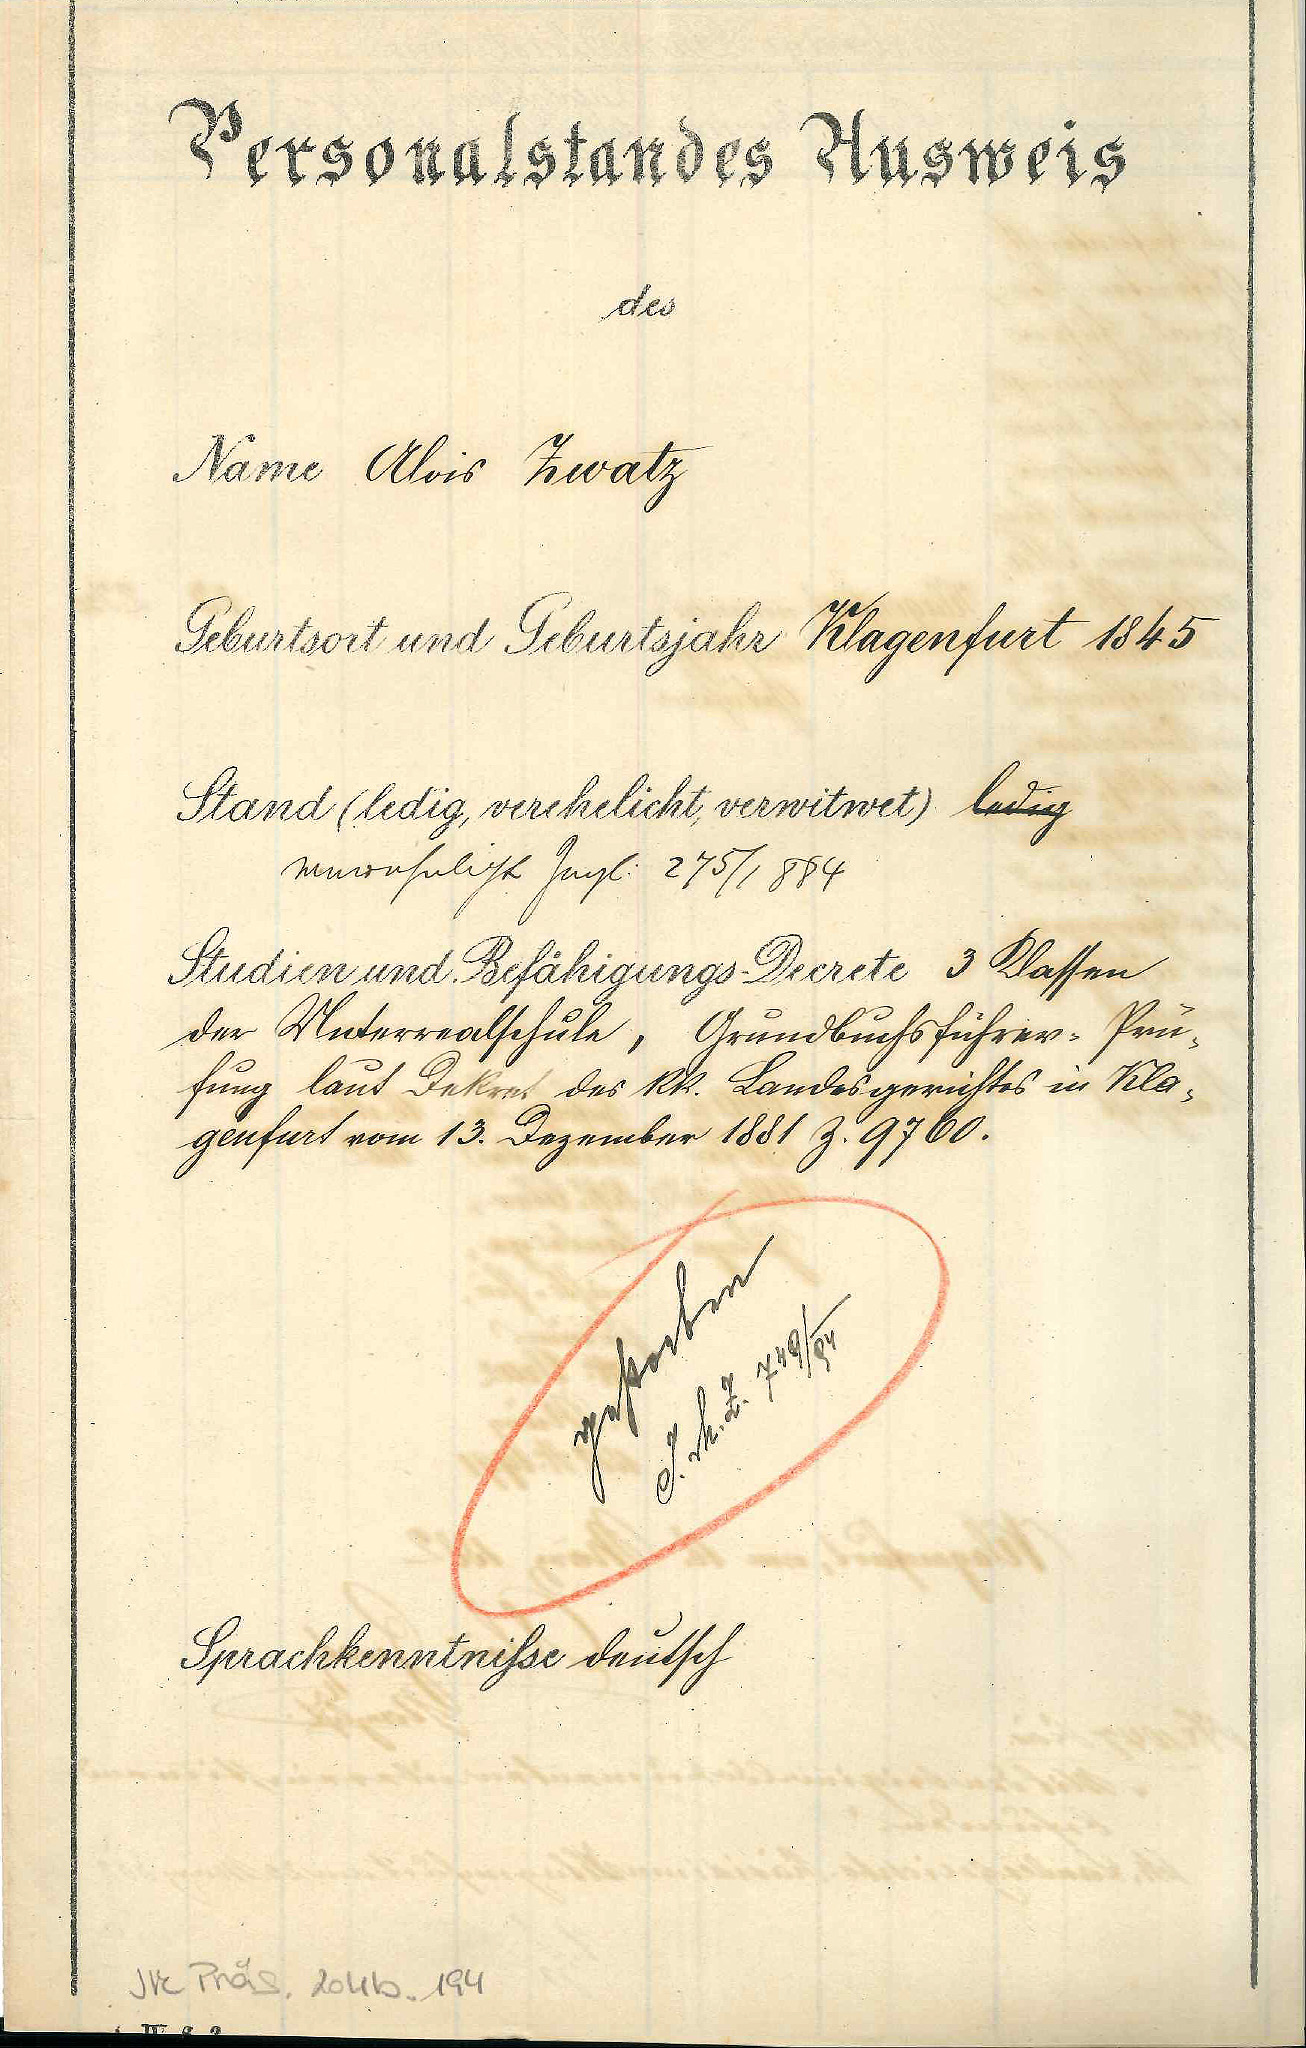 Personalstandes Ausweis
des
Name Alois Zwatz
Geburtsort und Geburtsjahr Klagenfurt 1845
Stand (ledig, verehelicht, verwitwet) ledig
275/1884
Studien und Befähigungs-Decrete 3 Klassen
der Unterrealschule, Grundbuchsführer-Prü-
fung laut Dekret des kk. Landesgerichtes in Kla-
genfurt vom 13. Dezember 1881 Z. 9760.
gestorben
749/84
Sprachkenntnisse deutsch
JK Präs. 204b. 194